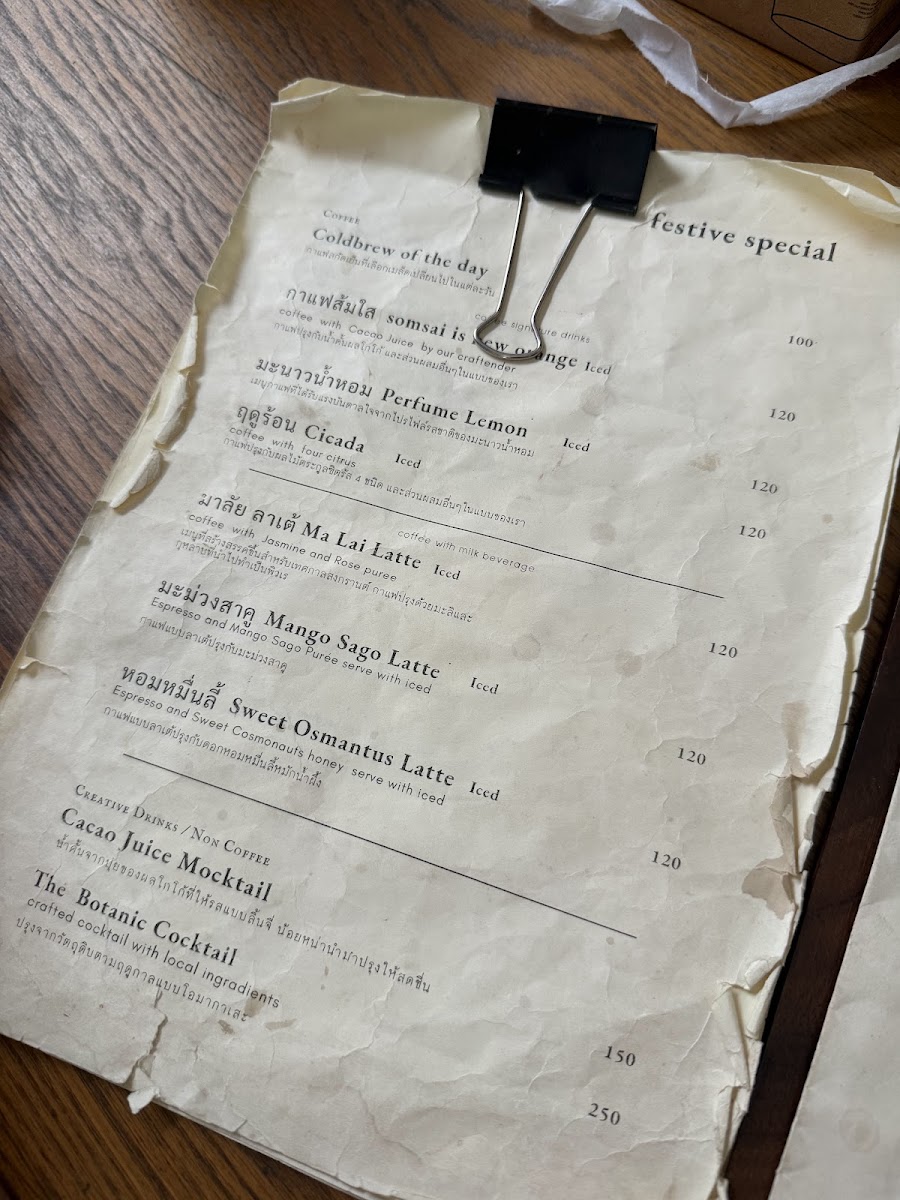 festive special
Coffee
Coldbrew of the day
กาแฟสกัดเย็นที่เลือกเมล็ดเปลี่ยนไปในแต่ละวัน
100
coffee signature drinks
กาแฟส้มใส somsai is new orange Iced
coffee with Cacao Juice by our craftender
กาแฟปรุงกับน้ำคั้นผลโกโก้ และส่วนผสมอื่นๆในแบบของเรา
120
มะนาวน้ำหอม Perfume Lemon Iced
เมนูกาแฟที่ได้รับแรงบันดาลใจจากโปรไฟล์รสชาติของมะนาวน้ำหอม
120
ฤดูร้อน Cicada Iced
coffee with four citrus
กาแฟปรุงกับผลไม้ตระกูลซิตรัส 4 ชนิด และส่วนผสมอื่นๆในแบบของเรา
120
coffee with milk beverage
มาลัย ลาเต้ Ma Lai Latte Iced
coffee with Jasmine and Rose puree
เมนูที่สร้างสรรค์ขึ้นสำหรับเทศกาลสงกรานต์ กาแฟปรุงด้วยมะลิและ
กุหลาบที่นำไปทำเป็นพิวเร
120
มะม่วงสาคู Mango Sago Latte Iced
Espresso and Mango Sago Purée serve with iced
กาแฟแบบลาเต้ปรุงกับมะม่วงสาคู
120
หอมหมื่นลี้ Sweet Osmantus Latte Iced
Espresso and Sweet Cosmonauts honey serve with iced
กาแฟแบบลาเต้ปรุงกับดอกหอมหมื่นลี้หมักน้ำผึ้ง
120
Creative Drinks / Non Coffee
Cacao Juice Mocktail
น้ำคั้นจากมุยของผลโกโก้ที่ให้รสแบบลิ้นจี่ น้อยหน่านำมาปรุงให้สดชื่น
150
The Botanic Cocktail
crafted cocktail with local ingradients
ปรุงจากวัตถุดิบตามฤดูกาลแบบโอมากาเสะ
250